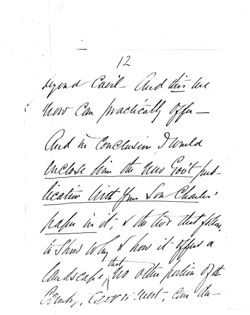 12
beyond Cavil - And this we
now can practically offer -
And in conclusion I would
enclose him the new Gov't pub-
lication with Your Son Charles'
paper in it, & the two that follow
to show why & how it offers a
landscape that no other portion of the
Country, East or West, can